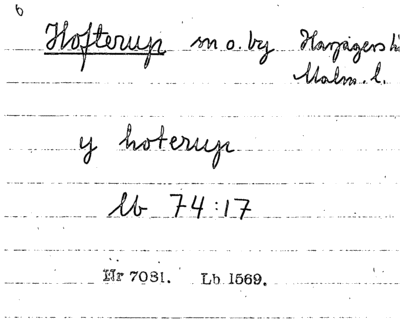 6
Hofterup sn o. by Harjagers h
Malm. l.
y hoterup
lb 74:17
Nr 7031. Lb 1569.